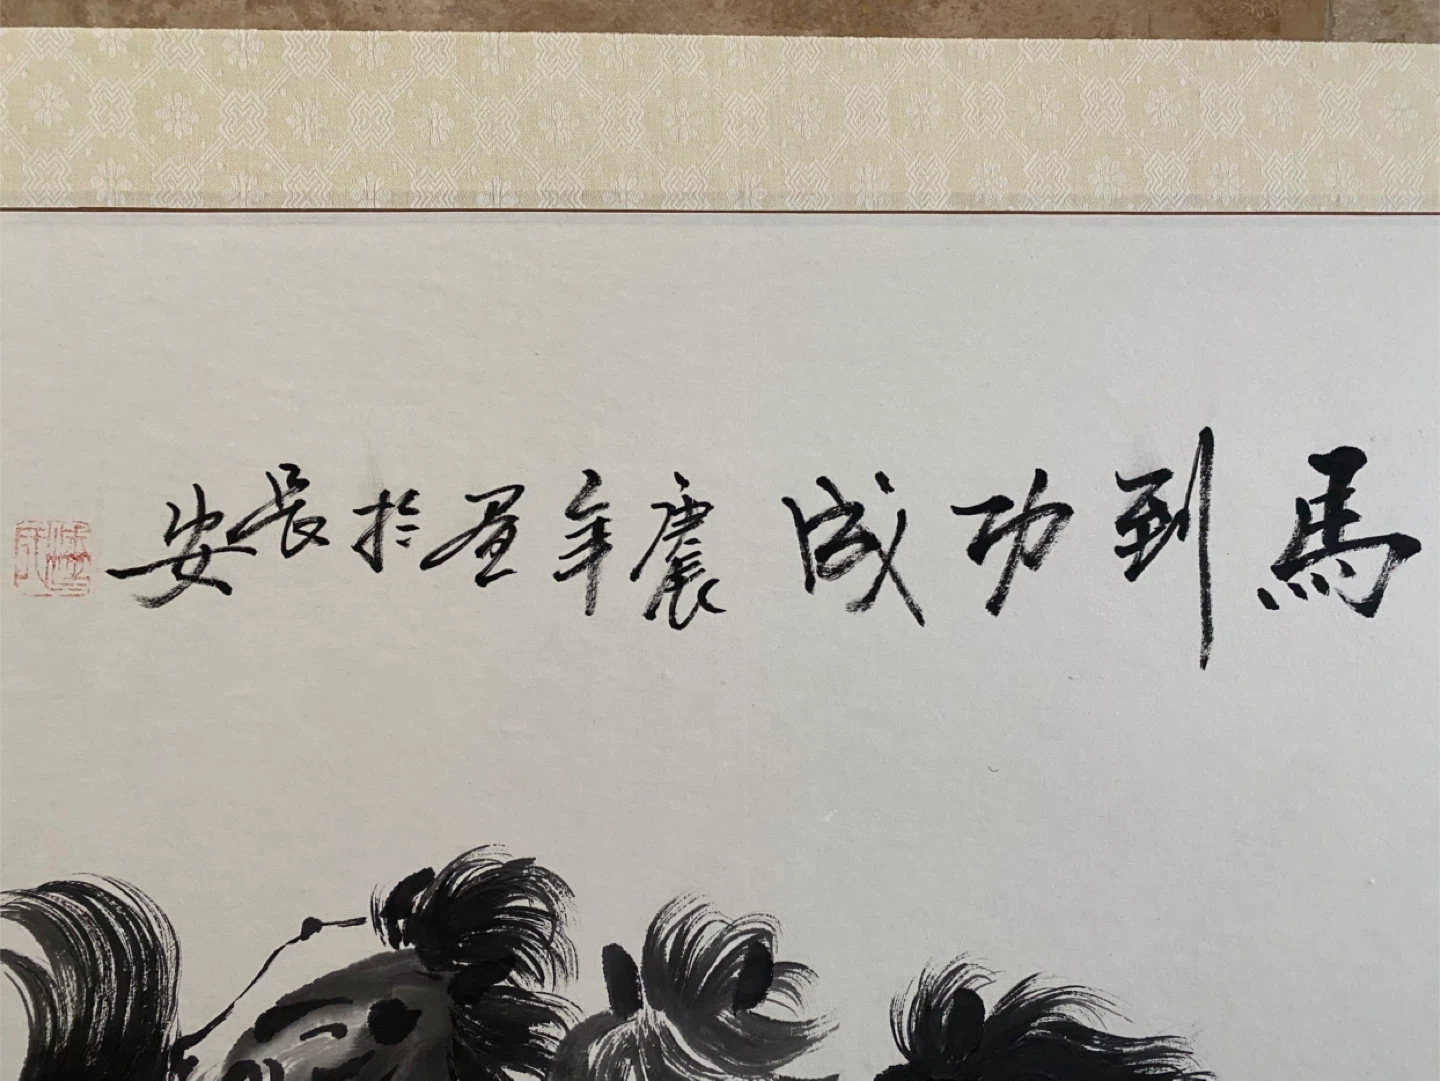 馬到功成 庚辰年畫於長安